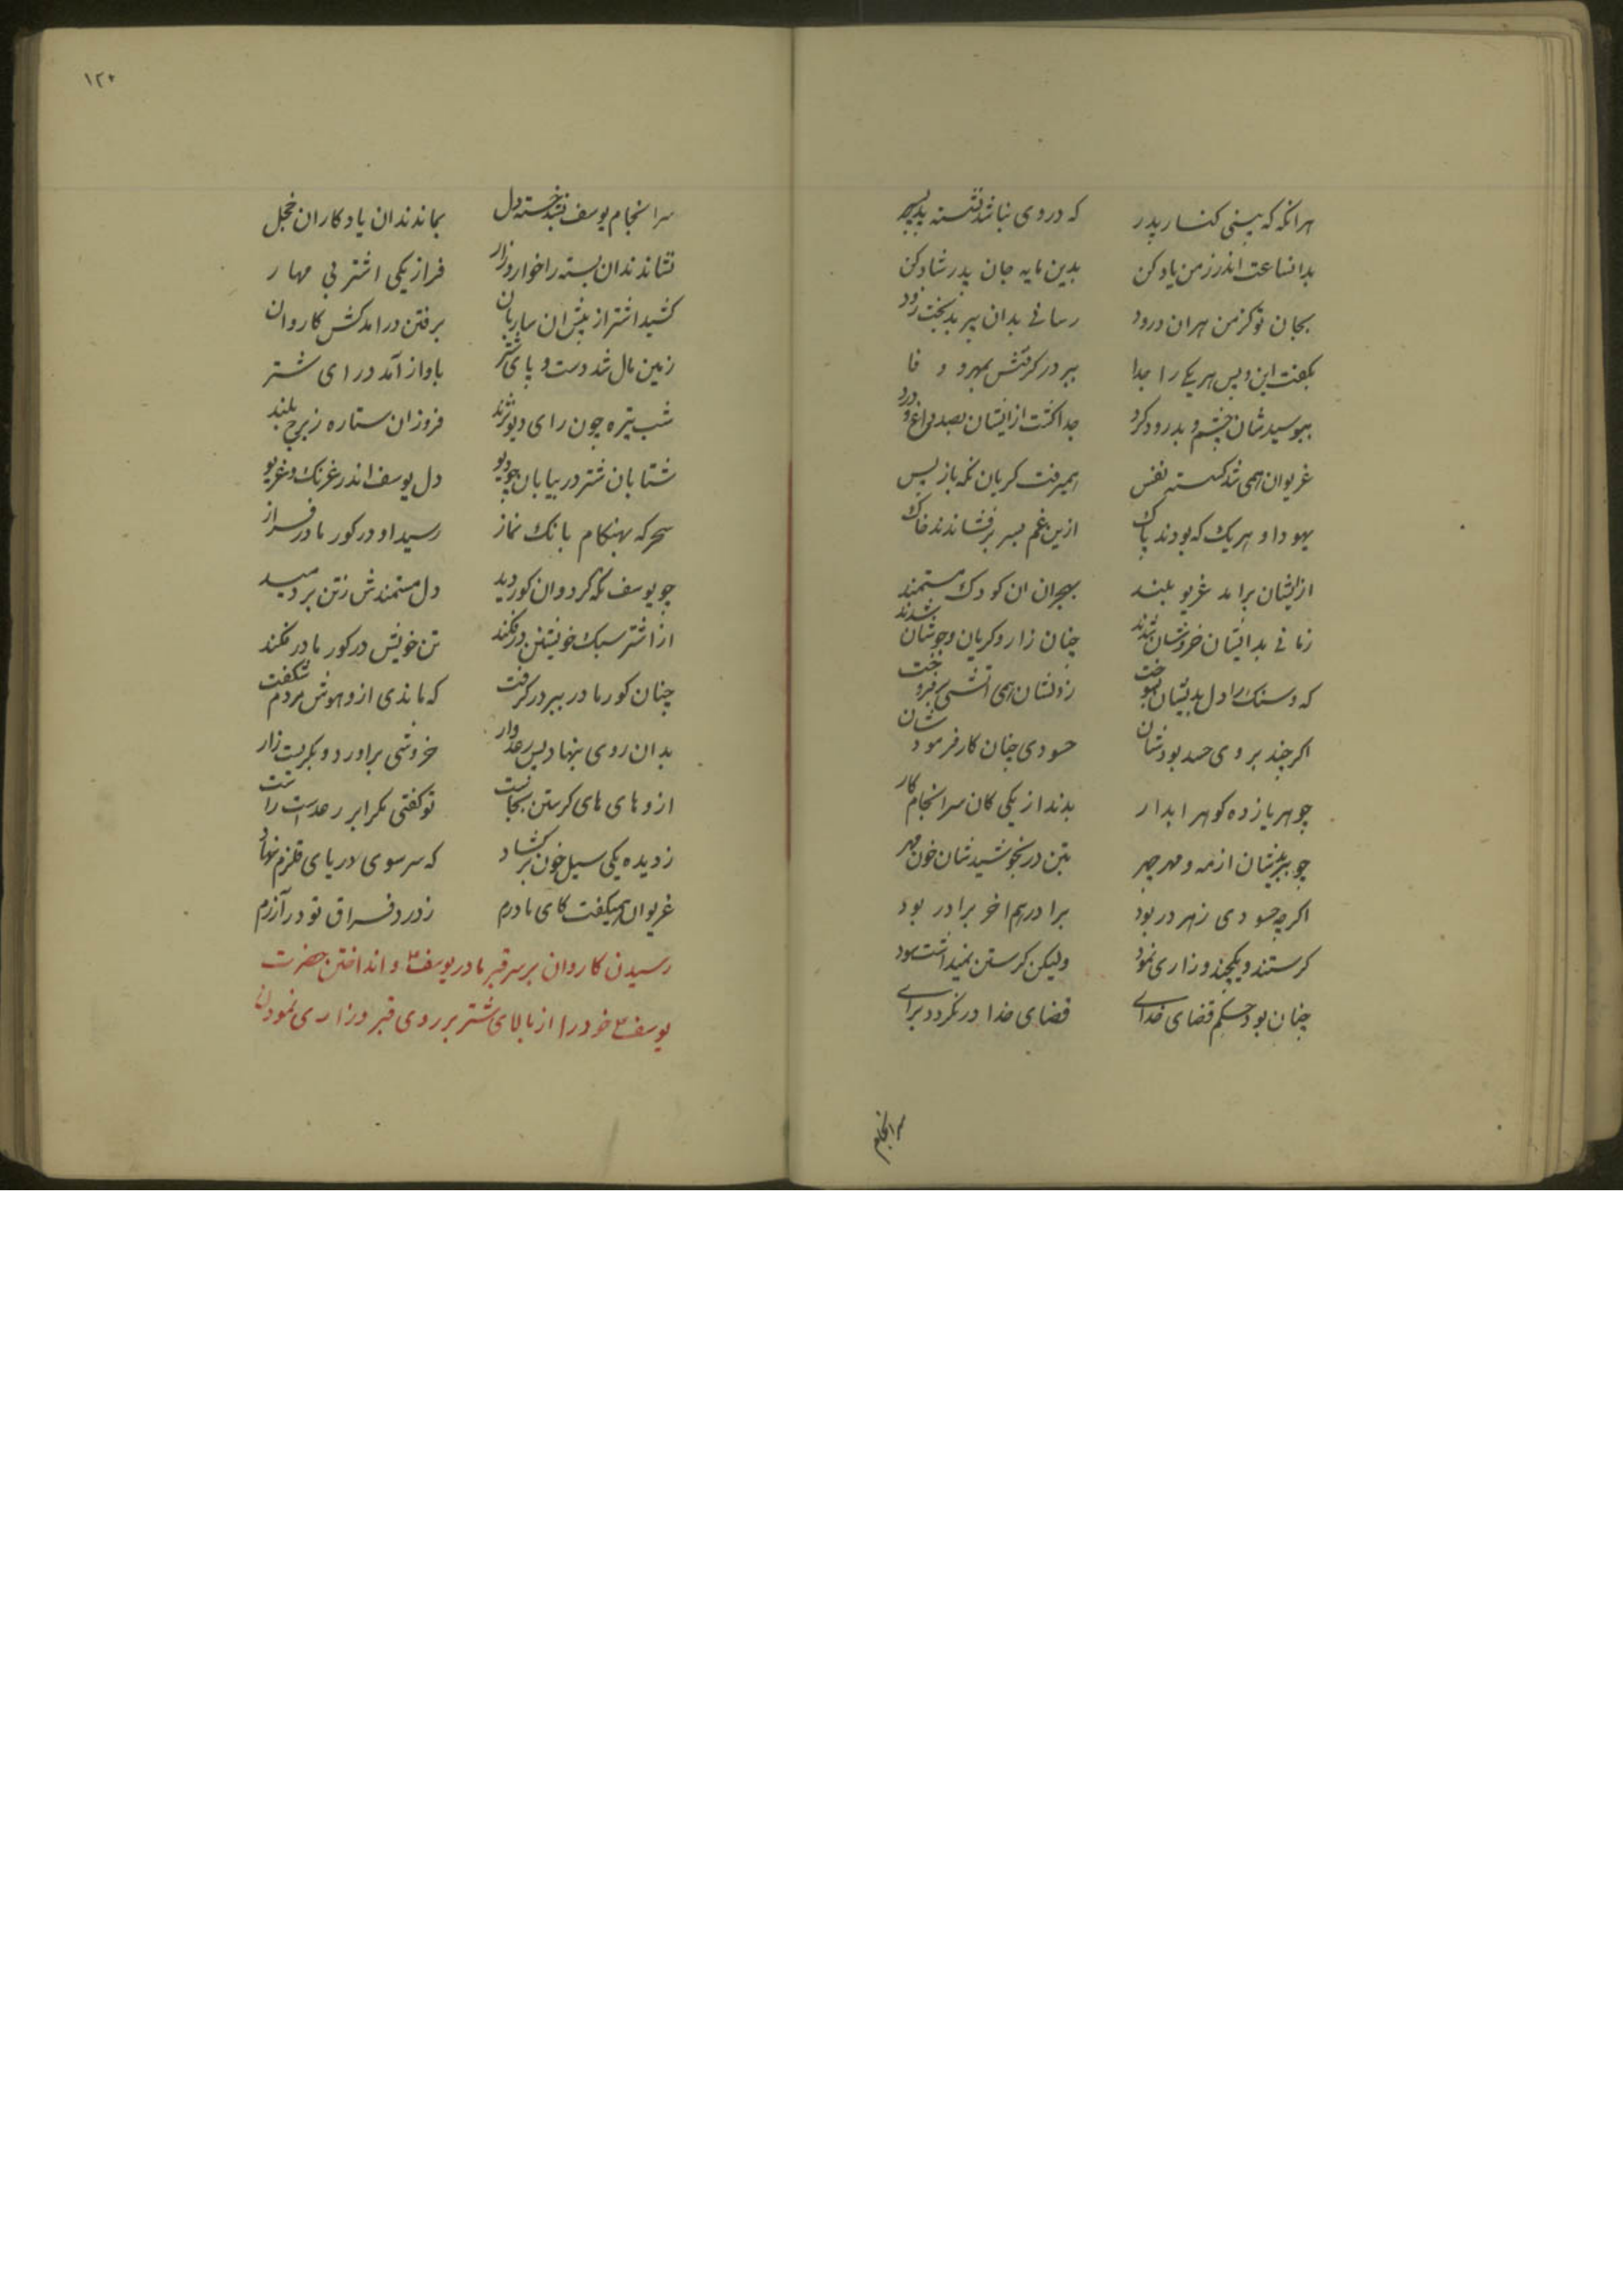 هرانکه که بینی کنار پدر که در وی نباشد نشسته پسر
بدانساعت اندرز من یاد کن بدین مایه جان پدر شاد کن
بجان تو کز من هران درود رسانی بدان پیر بدبخت زود
بگفت این و پس هر یکی را جدا ببر در گرفتش بمهر و وفا
ببوسید شان چشم و بدرود کرد جدا گشت ازایشان بصد داغ و درد
غریوان همی شد گسسته نفس همیرفت گریان نگه باز پس
یهودا و هر یک که بودند پاک ازین غم بسر بر فشاندند خاک
ازایشان برامد غریو بلند بهجران ان کودک مستمند
زمانی بدانسان خروشان شدند چنان زار و گریان و جوشان شدند
که دل بدیشان بسوخت زدلشان همی اتشی برفروخت
اگر چند بر وی حسد بودشان حسودی چنان کار فرمودشان
چو هر یازده گوهر ابدار بدند از یکی کان سرانجام کار
چو ببریدشان از مه و مهر چهر بتن در بجوشیدشان خون مهر
اگر چه حسودی زهر در بود برادر هم اخر برادر بود
گرستند و یکچند و زاری نمود ولیکن گرستن نمیداشت سود
چنان بود حکم قضای خدای قضای خدا در نگردد برای
سرانجام
۱۲۰
سرانجام یوسف بشد خسته دل بماندند ان یادکاران خجل
نشاندند ان بسته را خوار و زار فراز یکی اشتر بی مهار
کشید اشتر از پیش ان ساربان برفتن درامد کش کاروان
زمین مال شد دست و پای شتر باواز آمد درای شتر
شب تیره چون رای دیو نژند فروزان ستاره ز برج بلند
شتابان شتر در بیابان چو دیو دل یوسف اندر غرنک و غریو
سحرکه بهنکام بانک نماز رسید او در کور مادر فراز
چو یوسف نگه کرد و ان کور دید دل مستمندش زتن بر دمید
از اشتر سبک خویشتن در فکند تن خویش در کور مادر فکند
چنان کور مادر ببر در گرفت که ماندی ازو هوش مردم شگفت
بدان روی بنهاد پس رعدوار خروشی براورد و بگریست زار
ازو های های گرستن بخاست تو گفتی مگر ابر رعدست راست
ز دیده یکی سیل خون بر گشاد که سر سوی دریای قلزم نهاد
غریوان همیگفت کای مادرم ز درد فراق تو در آزرم
رسیدن کاروان بر سر قبر مادر یوسف ع و انداختن حضرت
یوسف ع خود را از بالای شتر بر روی قبر و زاری نمودن